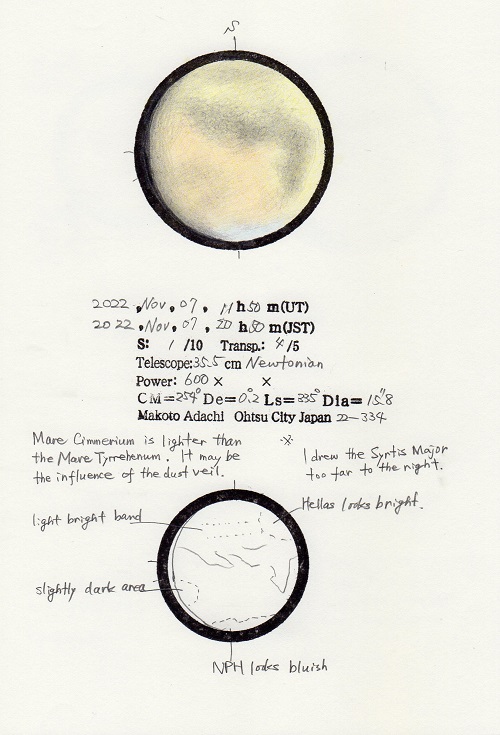 S
2022, Nov, 07, 11 h 50 m (UT)
2022, Nov, 07, 20 h 50 m (JST)
S: 1 /10 Transp.: 4 /5
Telescope: 35.5 cm Newtonian
Power: 600 × ×
CM=254° De=0.°2 Ls=335° Dia=15."8
Makoto Adachi Ohtsu City Japan 22-334
Mare Cimmerium is lighter than
the Mare Tyrrehenum. It may be
the influence of the dust veil.
※ I drew the Syrtis Major
too far to the right.
light bright band
Hellas looks bright.
slightly dark area
NPH looks bluish